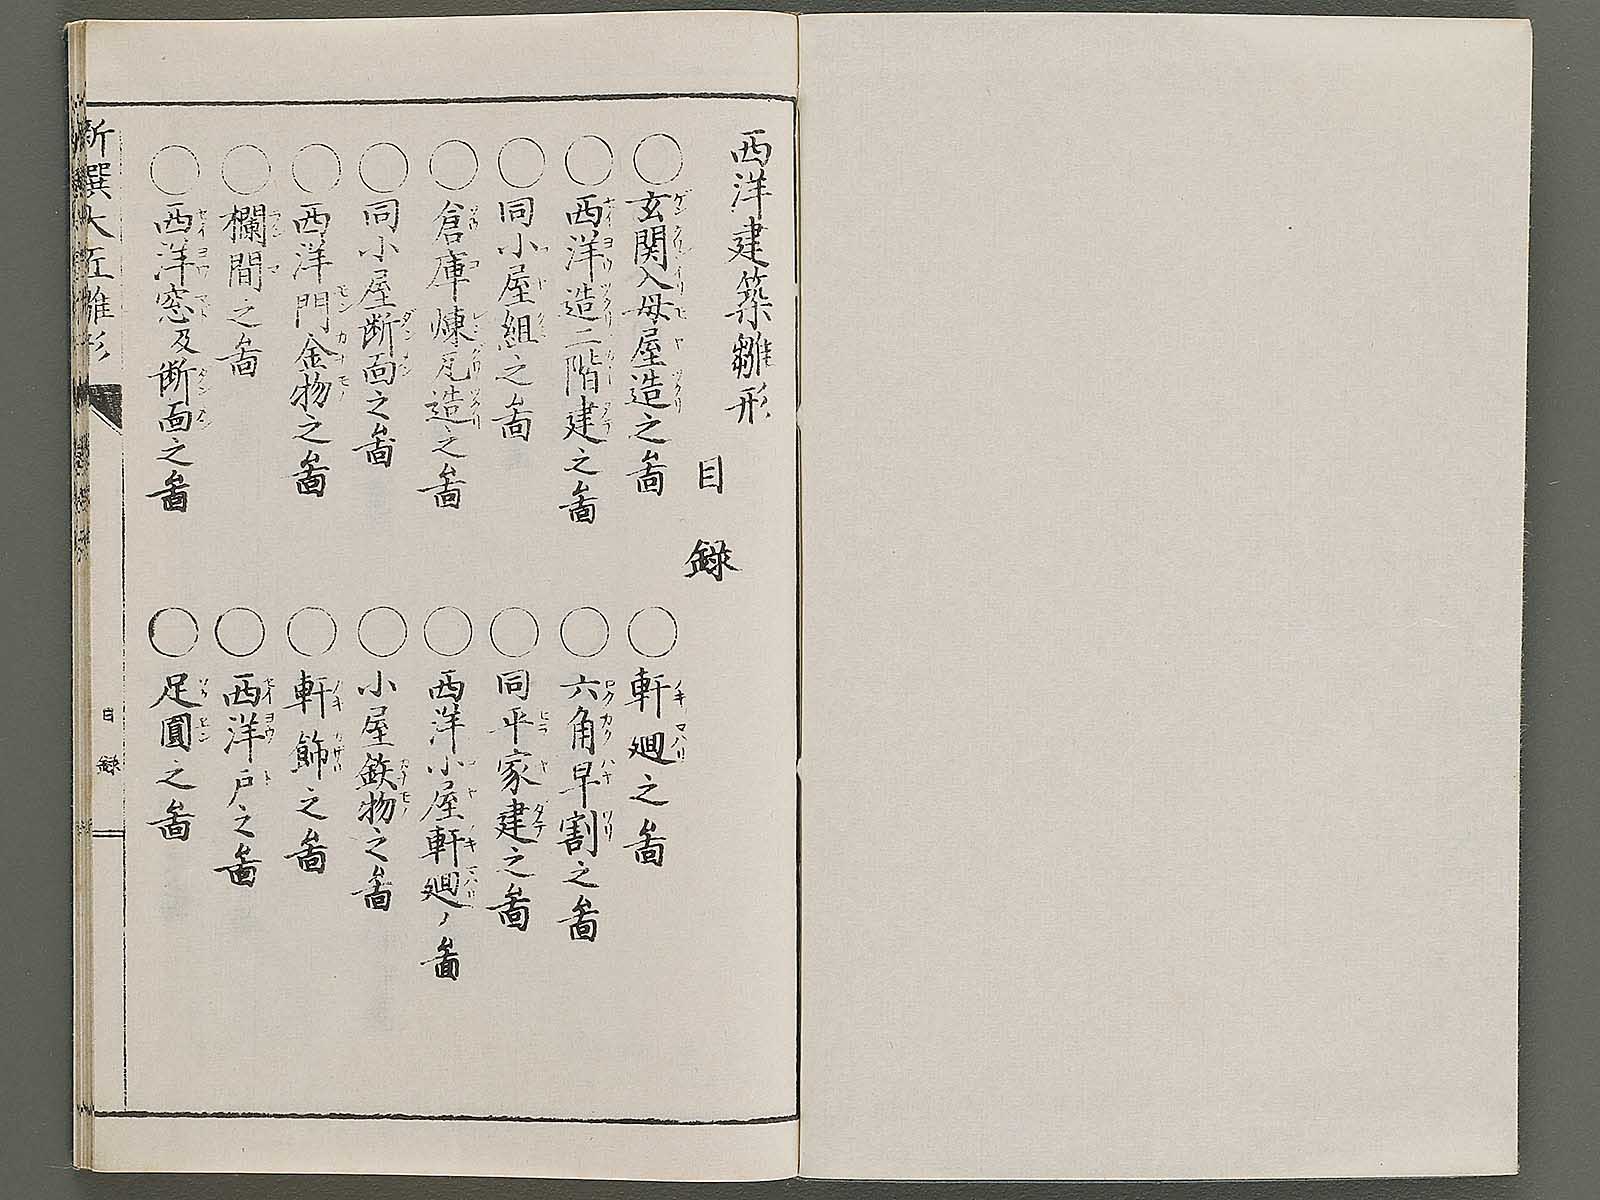 西洋建築雛形
目録
○玄関入母屋造之啚
○軒廻之啚
○西洋造二階建之啚
○六角早割之啚
○同小屋組之啚
○同平家建之啚
○倉庫煉瓦造之啚
○西洋小屋軒廻ノ啚
○同小屋断面之啚
○小屋鉄物之啚
○西洋門金物之啚
○軒飾之啚
○欄間之啚
○西洋戸之啚
○西洋窓及断面之啚
○足圓之啚
新撰大匠雛形
目録